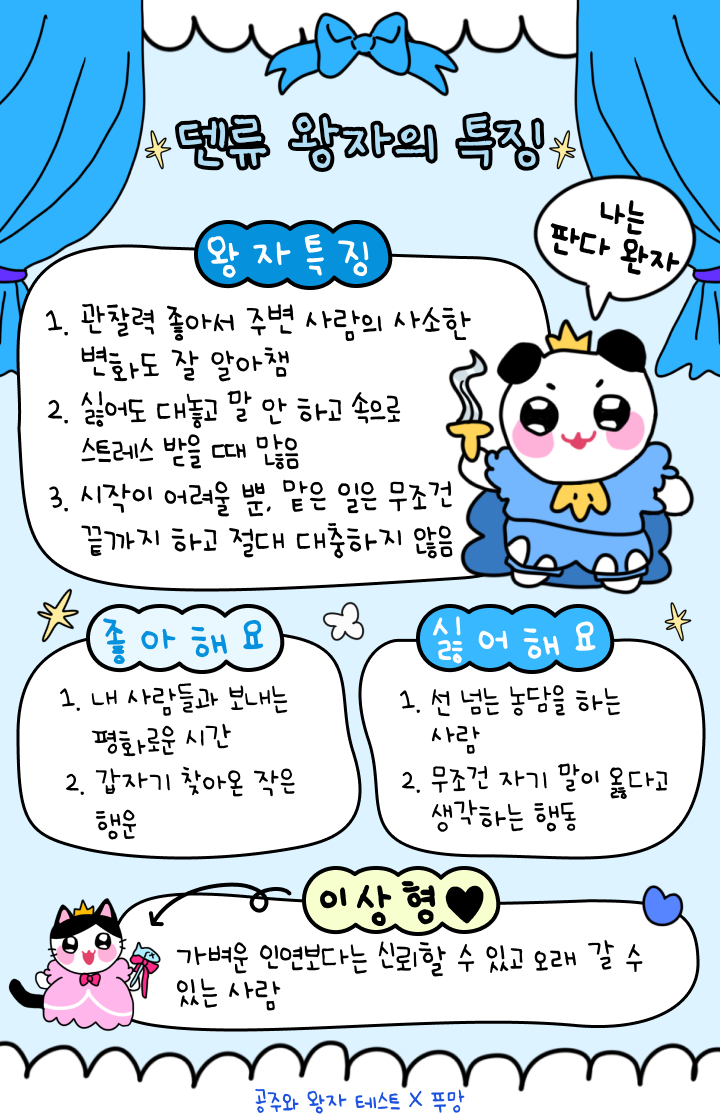 덴류 왕자의 특징
나는
판다 왕자
왕자특징
1. 관찰력 좋아서 주변 사람의 사소한
변화도 잘 알아챔
2. 싫어도 대놓고 말 안 하고 속으로
스트레스 받을 때 많음
3. 시작이 어려울 뿐, 맡은 일은 무조건
끝까지 하고 절대 대충하지 않음
좋아해요
1. 내 사람들과 보내는
평화로운 시간
2. 갑자기 찾아온 작은
행운
싫어해요
1. 선 넘는 농담을 하는
사람
2. 무조건 자기 말이 옳다고
생각하는 행동
이상형♥
가벼운 인연보다는 신뢰할 수 있고 오래 갈 수
있는 사람
공주와 왕자 테스트 X 푸망